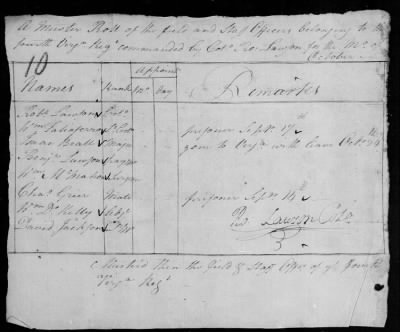 A Muster Roll of the field and Staff Officers belonging to the
fourth Virga Regt commanded by Colo Ro: Lawson, for the Mo. of
October
10
Appoint
Names Rank Mo. Day Remarks
Robt Lawson Colo
Wm Taliaferro Lt Colo prisoner Sept 17th
Isaac Beall Major gone to Virga with leave Octr 24th
Benj Lawson
Wm McMahon Surgeon
Chas Greer Mate prisoner Sept 14th
Wm Kelly Adjt
David Jackson Qr Mr
Ro Lawson Colo
Mustered then the field & Staff Officrs of ye fourth
Virga Regt